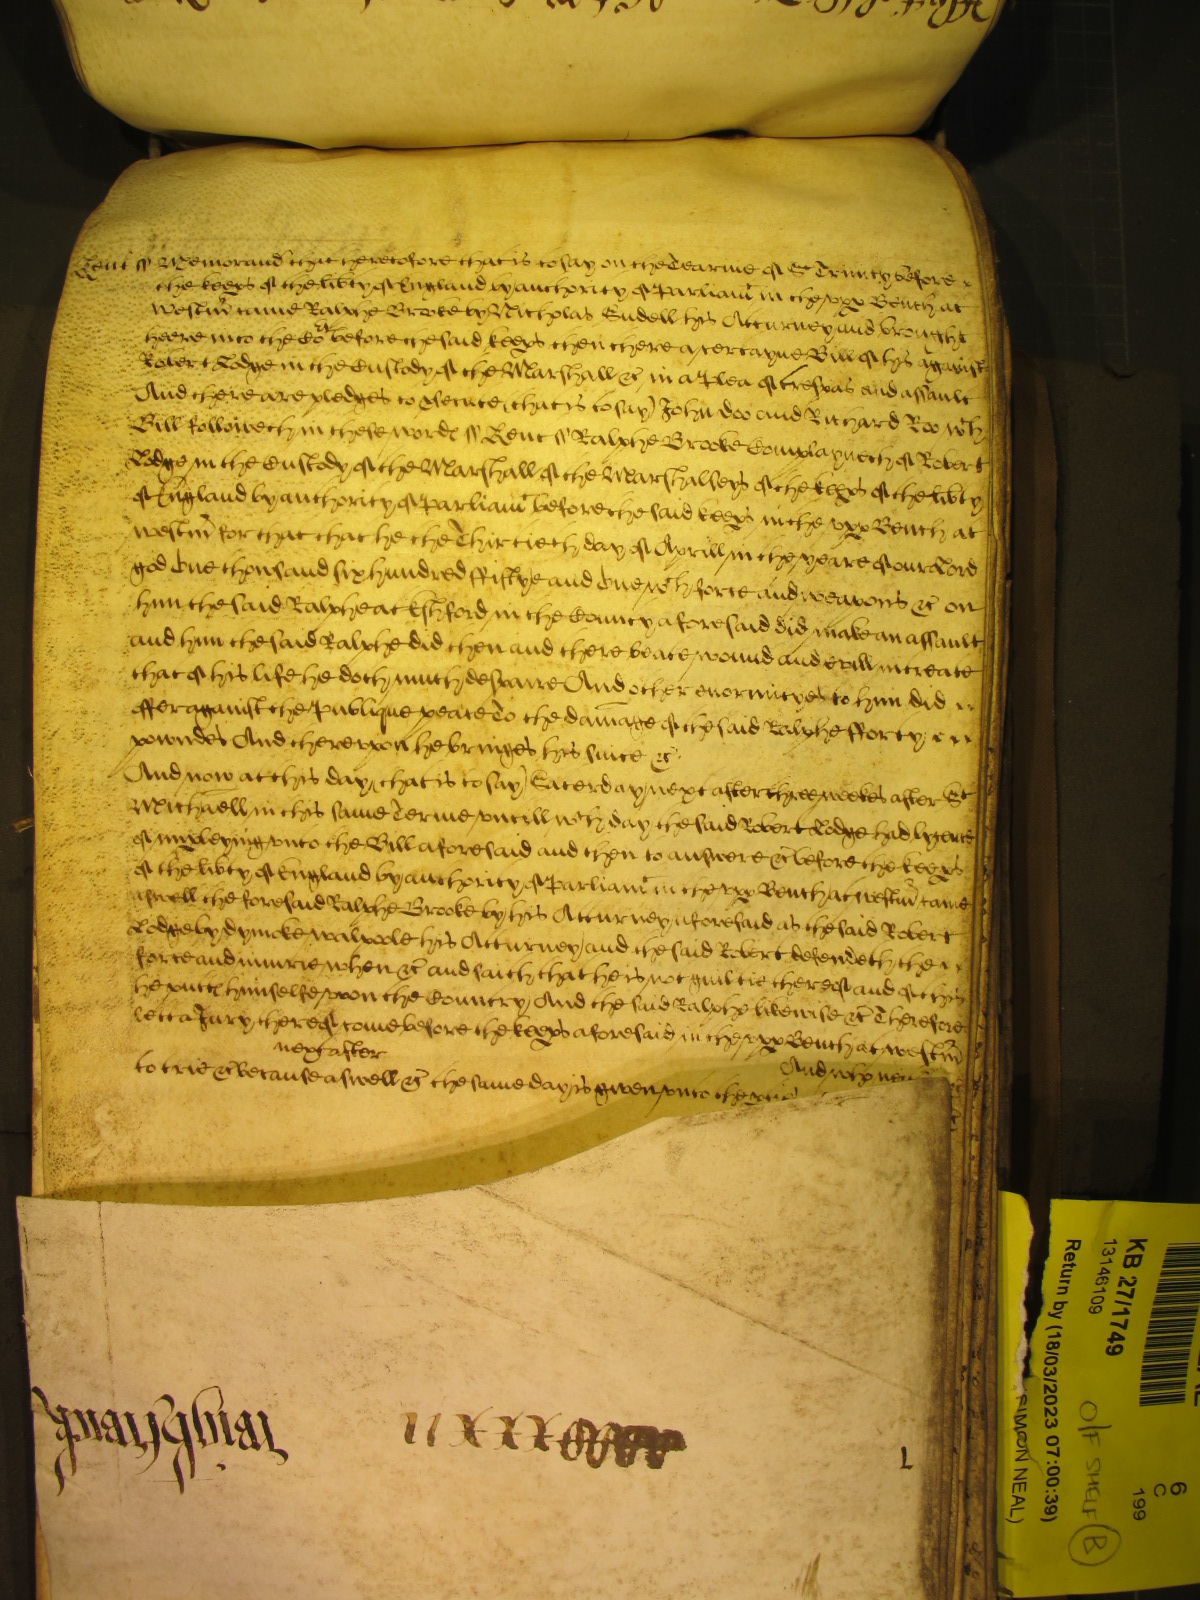 Kent ss Memorand that heretofore that is to say on the Tearme of St Trinity before
the keeps of the libty of England by authority of Parliam in the upp Bench at
Westm came Ralphe Brooke by Nicholas Endell his Atturney and brought
heere into the Cort before the said keeps then there a certayne Bill of his against
Robert Lodge in the Custody of the Marshall &c in a Plea of trespas and assault
And there are pledges to psecute that is to say John Doo and Richard Roo wch
Bill followeth in these words ss Kent ss Ralphe Brooke Complayneth of Robert
Lodge in the Custody of the Marshall of the Marshallseys of the keeps of the libty
of England by authority of Parliam before the said keeps in the upp Bench at
Westm for that that he the Thirtieth day of Aprill in the yeare of our Lord
god One thousand six hundred ffiftye and One wth force and weapons &c on
him the said Ralphe at Ashford in the County aforesaid did make an assault
and him the said Ralphe did then and there beate wound and evill intreate
that of his life he doth much despaire And other enormityes to him did
offer against the Publique peace To the damage of the said Ralphe fforty
pownds And thereupon he bringes his suite &c
And now at this day that is to say Saterday next after three weekes after St
Michaell in this same Terme untill wch day the said Robert Lodge had lycence
of impleying unto the Bill aforesaid and then to answere &c before the keeps
of the libty of England by authority of Parliam in the upp Bench at Westm came
aswell the foresaid Ralphe Brooke by his Atturney aforesaid as the said Robert
Lodge by dymoke walpole his Atturney and the said Robert defendeth the
force and iniurie when &c and saith that he is not guiltie thereof and of this
he putts himselfe upon the Country And the said Ralphe likewise &c Therefore
lett a Jury thereof come before the keeps aforesaid in the upp Bench at Westm
next after And who nei
to trie &c because aswell &c the same day is given unto the
KB 27/1749
13146109
Return by (18/03/2023 07:00:39)
SIMON NEAL)
O/F SHELF
B
6
C
199